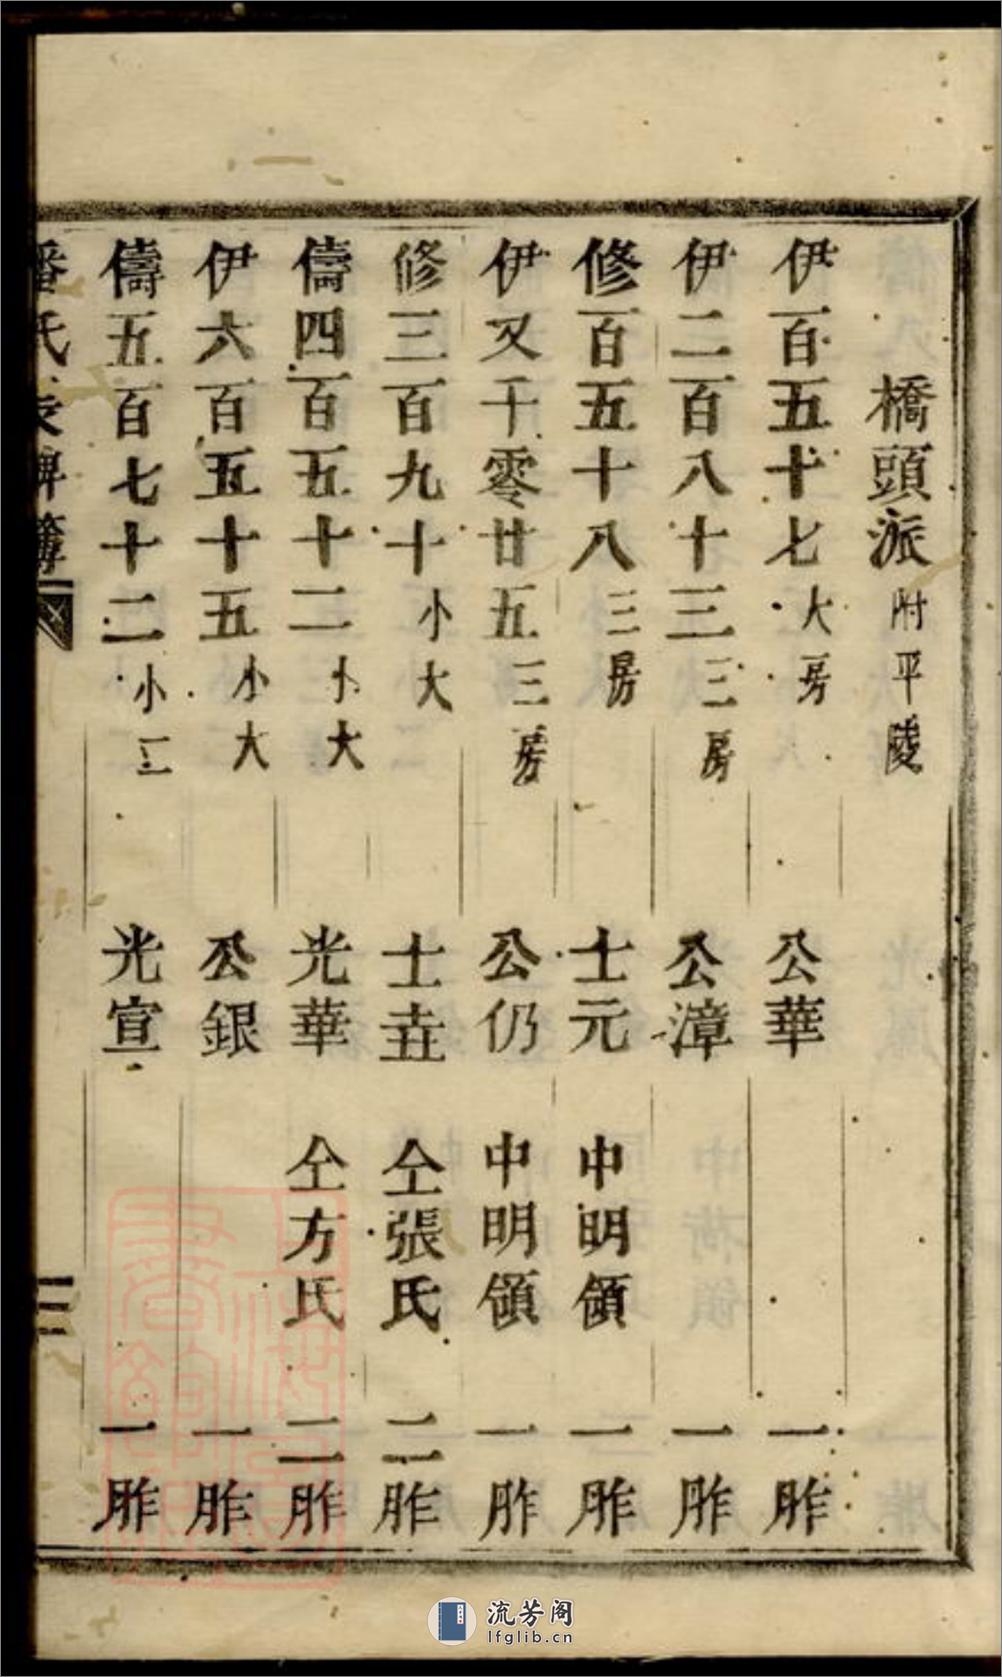 橋頭派附平陵
伊百五十七大房 公華 一胙
伊二百八十三三房 公漳 一胙
修百五十八三房 士元 中明領 一胙
伊又千零廿五三房 公仍 中明領 一胙
修三百九十小大 士壵 仝張氏 二胙
儔四百五十二小大 光華 仝方氏 二胙
伊六百五十五小大 公銀 一胙
儔五百七十二小三 光宣 一胙
流芳阁
lfglib.cn